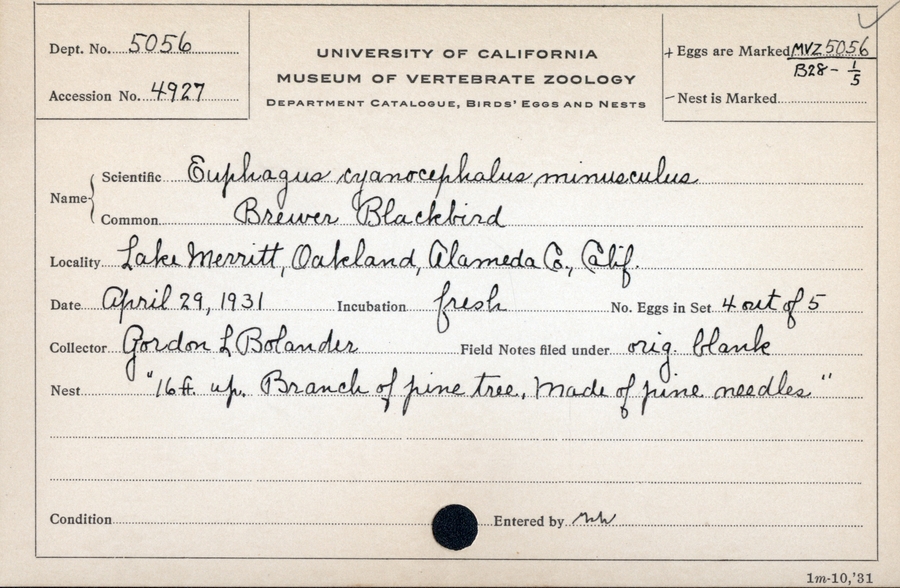 Dept. No. 5056
Accession No. 4927
UNIVERSITY OF CALIFORNIA
MUSEUM OF VERTEBRATE ZOOLOGY
DEPARTMENT CATALOGUE, BIRDS' EGGS AND NESTS
+ Eggs are Marked MVZ 5056
B28 - 1/5
- Nest is Marked
Name { Scientific Euphagus cyanocephalus minusculus
Common Brewer Blackbird
Locality Lake Merritt, Oakland, Alameda Co., Calif.
Date April 29, 1931 Incubation fresh No. Eggs in Set 4 out of 5
Collector Gordon L Bolander Field Notes filed under orig. blank
Nest "16 ft. up. Branch of pine tree. Made of pine needles"
Condition Entered by
1m-10,'31